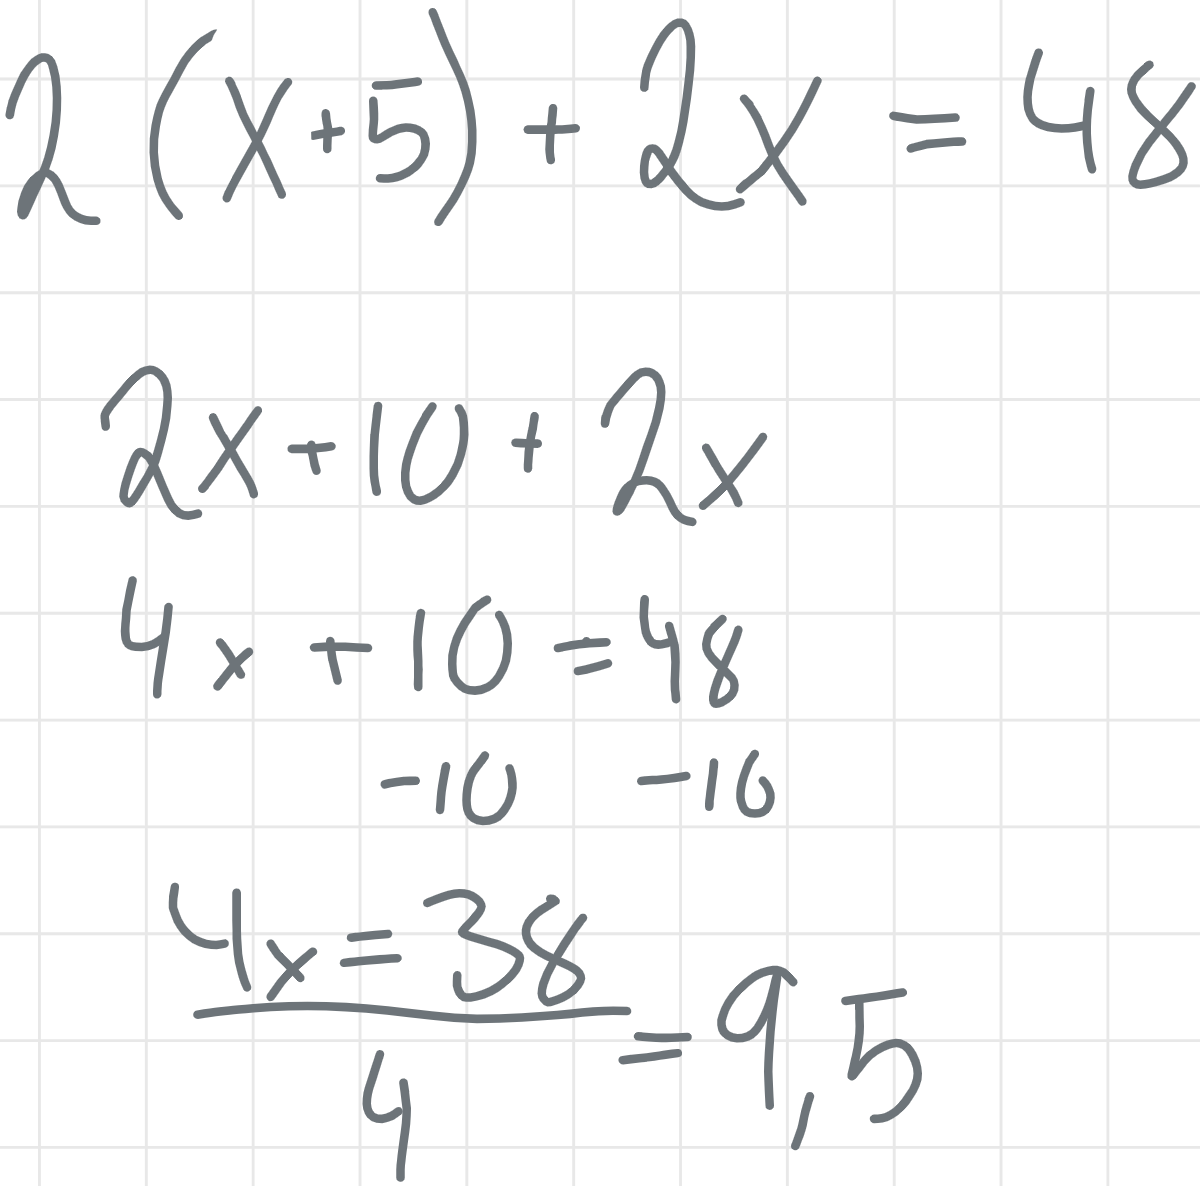 2(x+5)+2x=48
2x+10+2x
4x+10=48
-10 -10
4x=38
4
=9,5